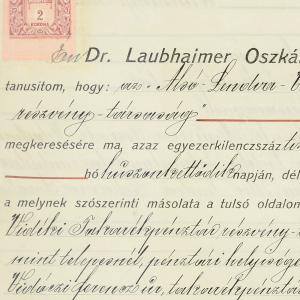 2
KORONA
Én Dr. Laubhaimer Oszká
tanusitom, hogy: az „Alsó-Lendva-
részvény-társaság"
megkeresésére ma, azaz egyezerkilenczszáz ti
hó huszonkettődik napján, dél
a melynek szószerinti másolata a tulsó oldalon
Vidéki Takarékpénztár részvény-
mint telepesnél, pénztári helyiség
ferencz úr, takarékpénztár